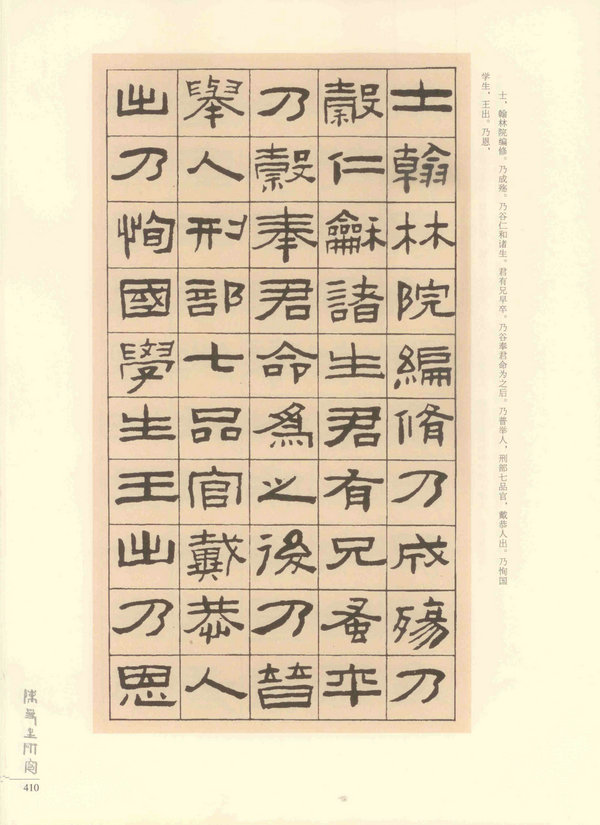 士、翰林院编修。乃成殇。乃谷仁和诸生。君有兄早卒。乃谷奉君命为之后。乃普举人，刑部七品官，戴恭人出。乃恂国
学生，王出。乃恩、
士翰林院編脩乃成殤乃
穀仁龢諸生君有兄蚤卒
乃穀奉君命爲之後乃普
舉人刑部七品官戴恭人
出乃恂國學生王出乃恩
410